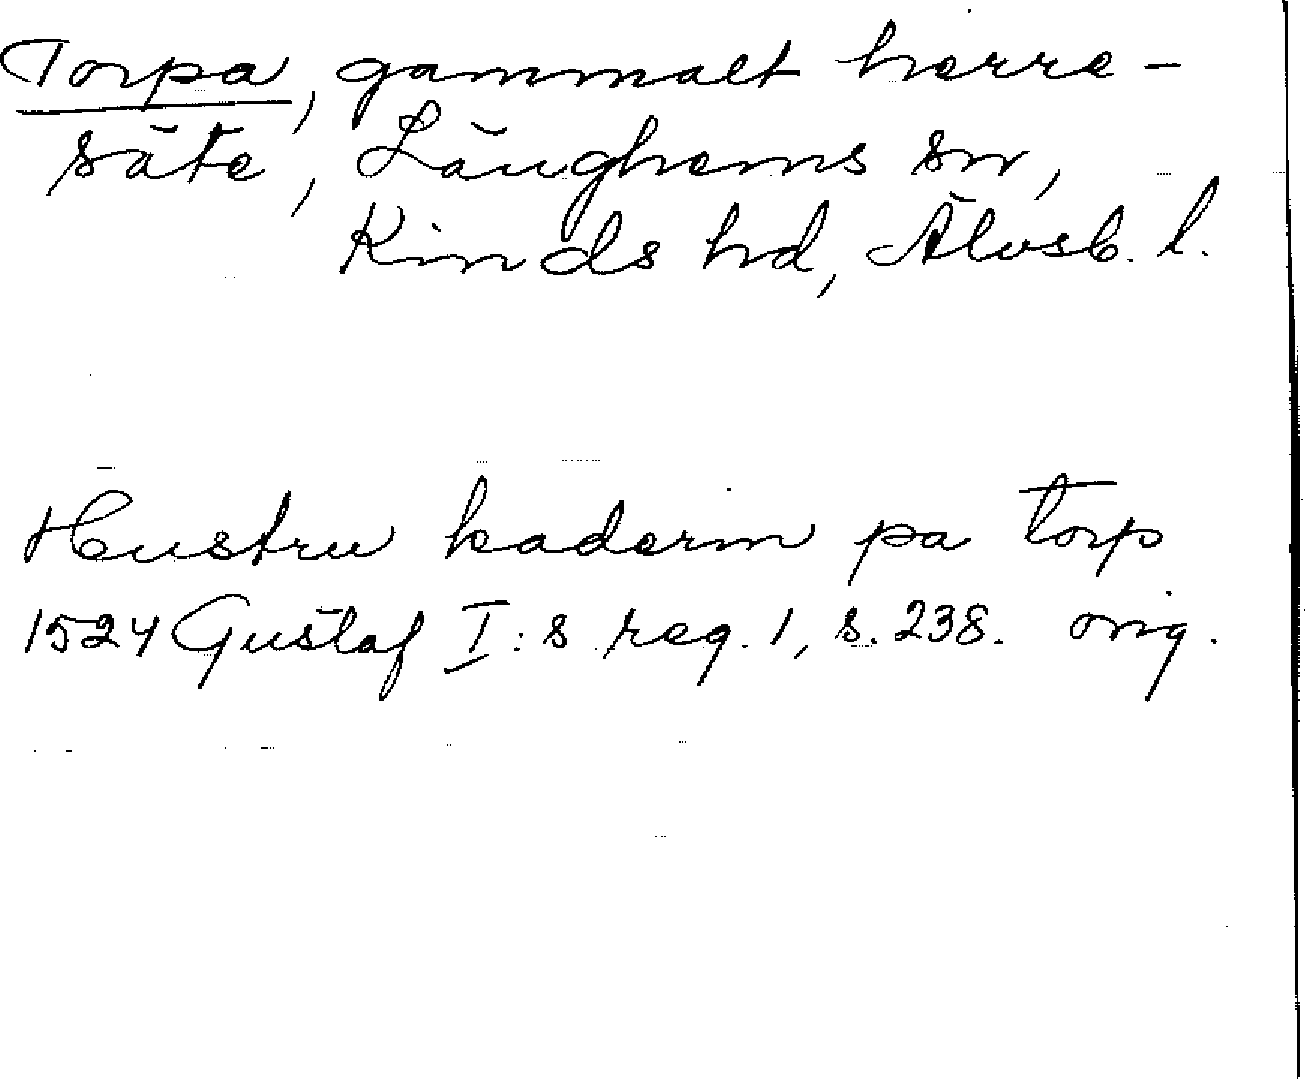 Torpa, gammalt herre-
säte, Länghems sn,
Kinds hd, Älvsb. l.
Hustru kaderin pa torp
1524 Gustaf I:s reg. 1, s. 238. orig.